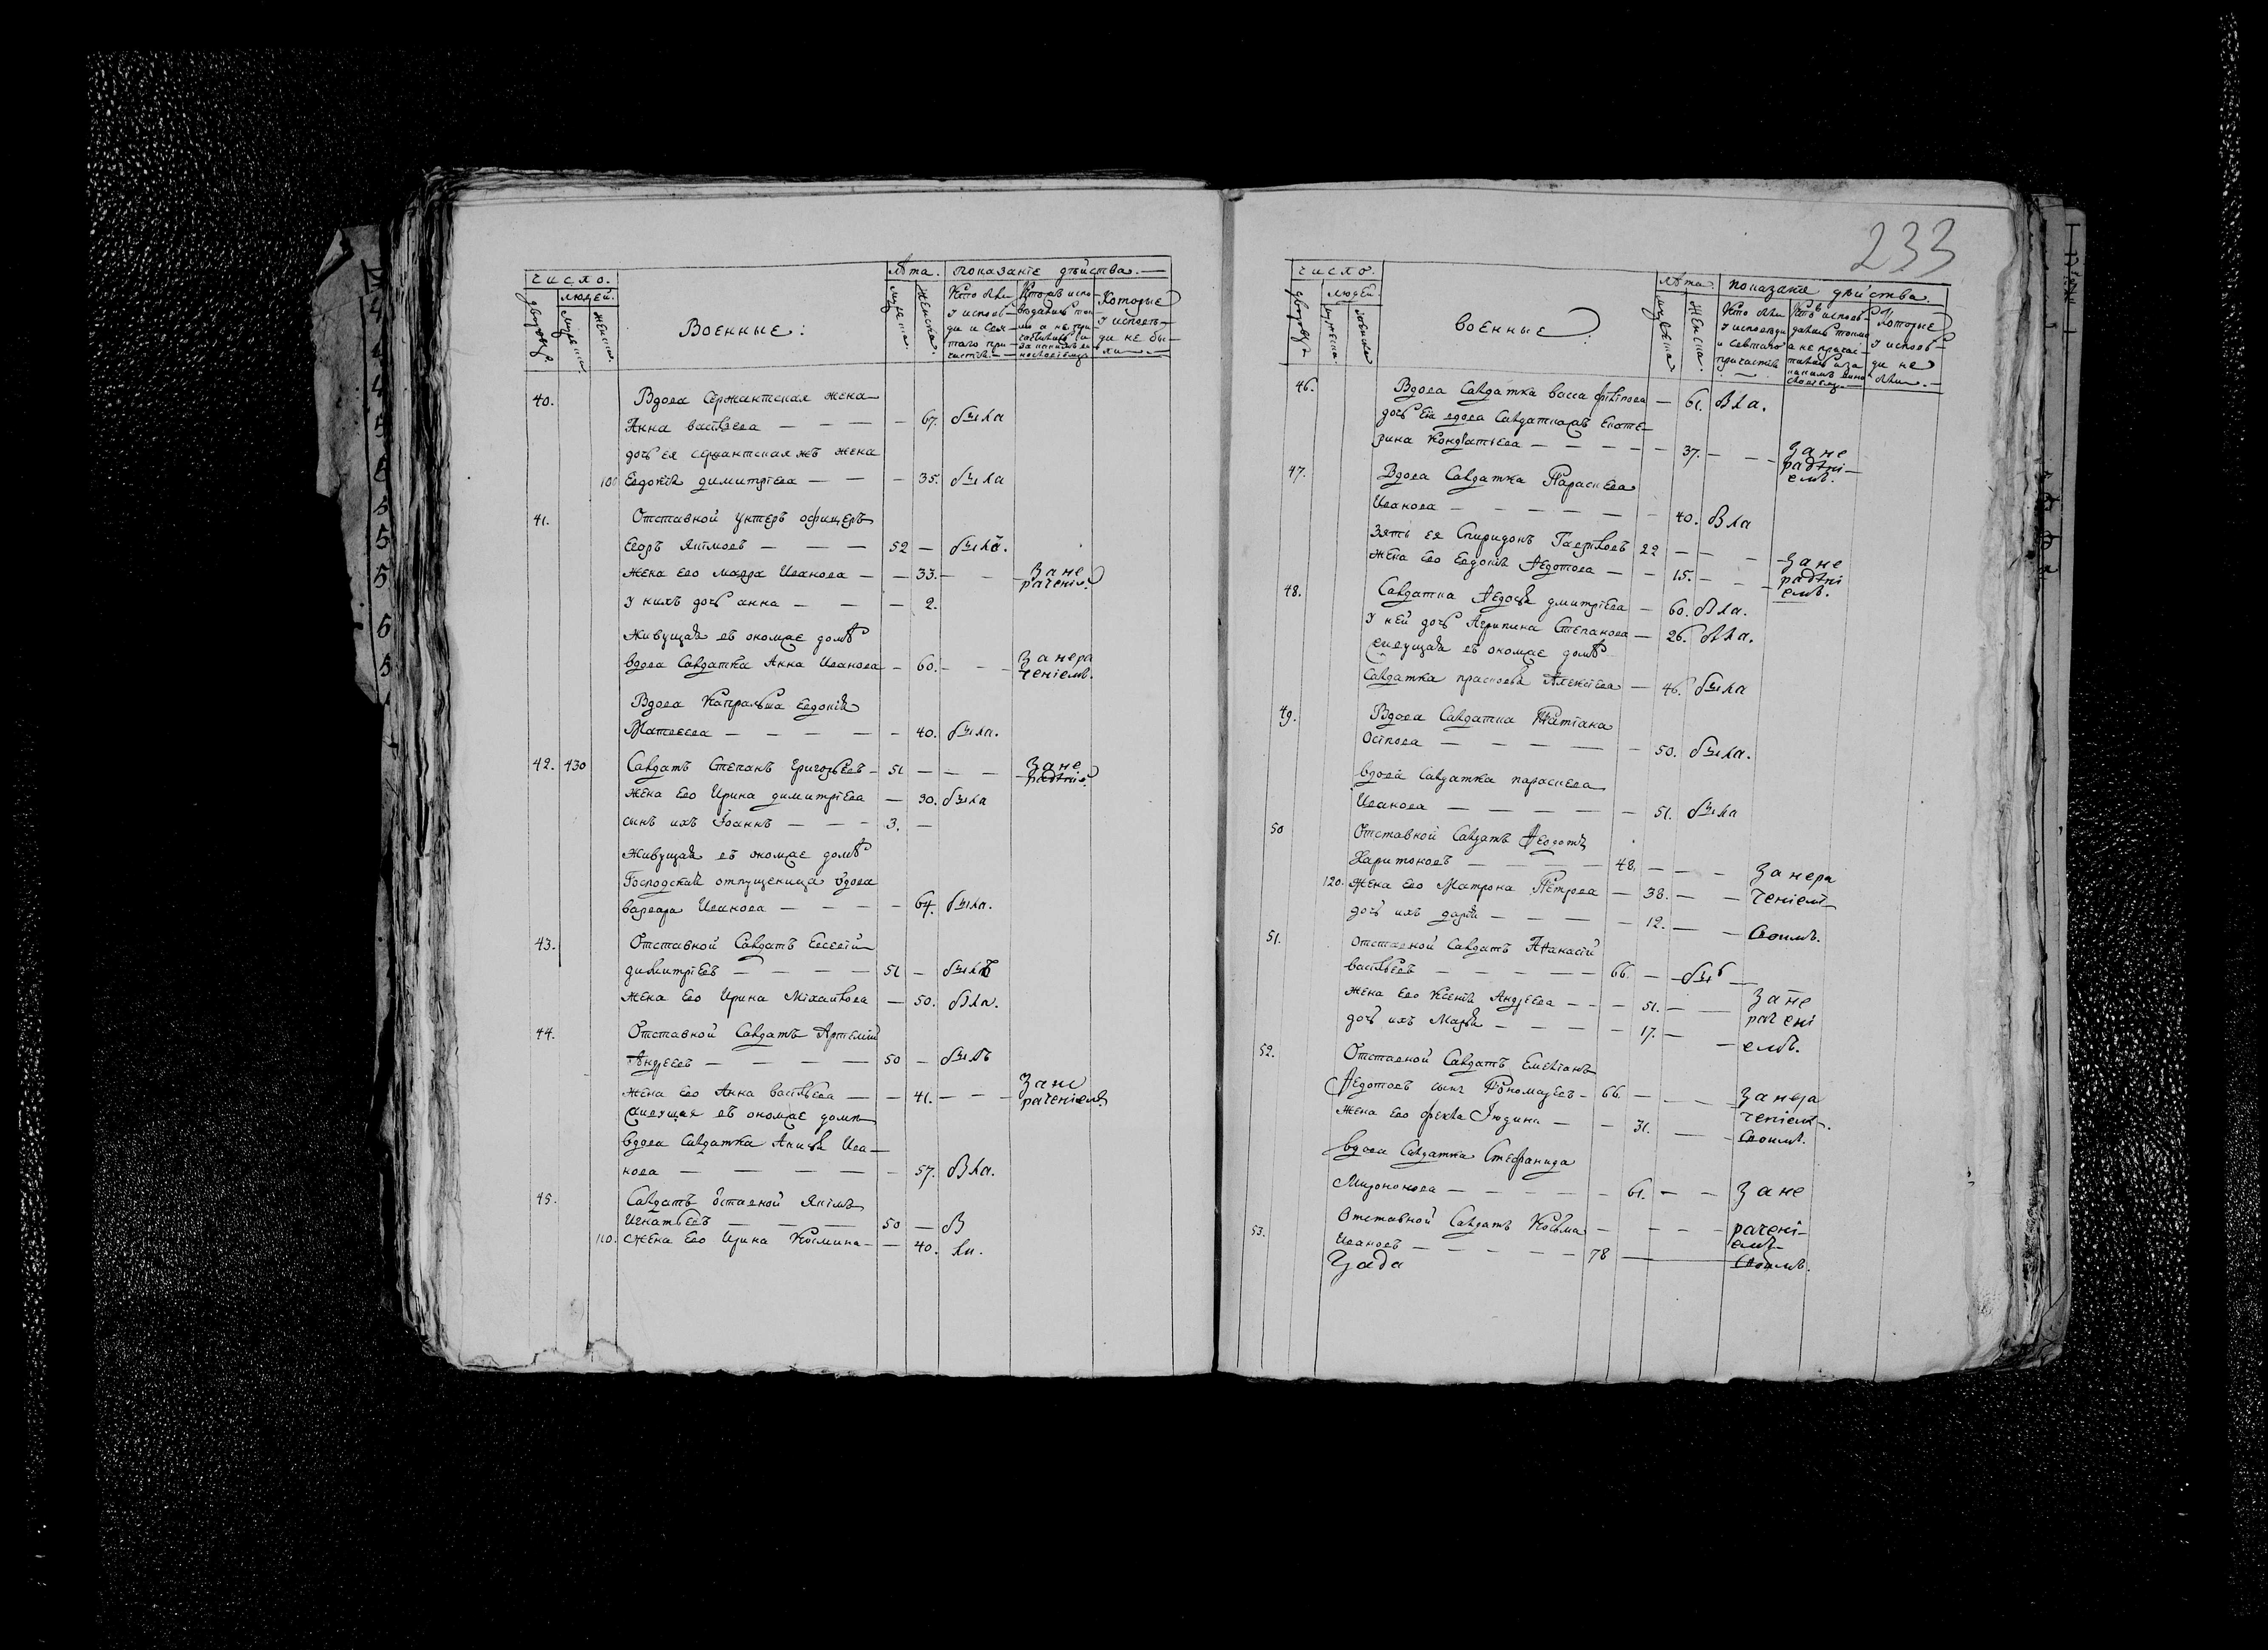 число.
людей.
дворовъ.
мужеска
женска.
Военные:
лѣта.
мужеска.
женска.
показанїе дѣйства.
Кто были
у исповѣ-
ди и свя-
таго при-
частїя.
Которые
у исповѣ-
ди не бы-
ли
40.
Вдова Сержантская жена
Анна васильева — — — — 67. была
дочь ея сержантская жъ жена
Евдокїя димитрїева — — — 35. была
41.
Отставной Унтеръ офицеръ
Егоръ Якимовъ — — — 52 — былъ.
жена Его марфа Иванова — — 33. — — За не
раченїе
у нихъ дочь анна — — — 2.
Живущая въ ономже домѣ
вдова Салдатка Анна Иванова — 60. — — За нера
ченїемъ.
Вдова Капральша Евдокїя
Матвеева — — — — — 40. была.
42. 430 Салдатъ Степанъ Григорьевъ — 51 — — За не
радѣнїе
жена Его Ирина димитрїева — 30. была
сынъ ихъ Іоаннъ — — — 3. —
Живущая въ ономже домѣ
Господская отпущеница вдова
варвара Иванова — — — — 64. была.
43.
Отставной Салдатъ Евсевїй
димитрїевъ — — — — 51 — былъ
Жена Его Ирина Мїхаилова — 50. Была.
44.
Отставной Салдатъ Артемїй
Андреевъ — — — — 50 — былъ
жена Его Анна васильева — — 41. — — За не
раченїемъ
живущая въ ономже доми
вдова Салдатка Анисья Ива-
нова — — — — — 57. Была.
45.
Салдатъ отставной Якимъ
Игнатьевъ — — — 50 — Бы
110. жена Его Ирина Космина — — 40. ли.
233
число.
людей
дворовъ
мужеска.
женска
военные
лѣта.
мужеска
женска.
показанїе дѣйства.
Кто были
у исповѣди
и Святаго
причастїя
Которые
у исповѣ-
ди не
были
46.
Вдова Салдатка васса филїпова — 61. Была.
дочь Ея вдова Салдатскаяжъ Екате-
рина Кондратьева — — — — — 37. — — За не
радѣнї-
емъ.
47.
Вдова Салдатка Параскева
Иванова — — — — — — 40. Была
Зять ея Спиридонъ Гавриловъ 22 — — — За не
жена Его Евдокїя Ѳедотова — — 15. — — радѣнї
емъ.
48.
Салдатка Ѳедосья дмитрїева — 60. Была.
у ней дочь Агрипина Степанова — 26. Была.
живущая въ ономже домѣ
Салдатка прасковья Алексїева — 46. была
49.
Вдова Салдатка Татїана
Осїпова — — — — — — 50. была.
вдова Салдатка параскева
Иванова — — — — — 51. была
50
Отставной Салдатъ Ѳедотъ
Харитоновъ — — — — 48. — — — За нера
120. жена Его Матрона Петрова — 38. — — ченїемъ
дочь ихъ дарья — — — — 12. — — Своимъ.
51.
отставной Салдатъ Аѳанасїй
васильевъ — — — — — 66. — былъ —
жена Его Ксенїя Андреева — — — 51. — — За не
раченї
дочь ихъ Марья — — — — 17. — — емъ.
52.
Отставной Салдатъ Емелїанъ
Ѳедотовъ сынъ Пономаревъ — 66. — — — За нера
ченїемъ
жена Его фекла Іюдина — — 31. — — Своимъ.
вдова Салдатка Стефанида
Миронова — — — — — — 61. — — За не
раченї-
53.
Отставной Салдатъ Косьма — — — —
емъ
Ивановъ — — — — — — 78 — Своимъ.